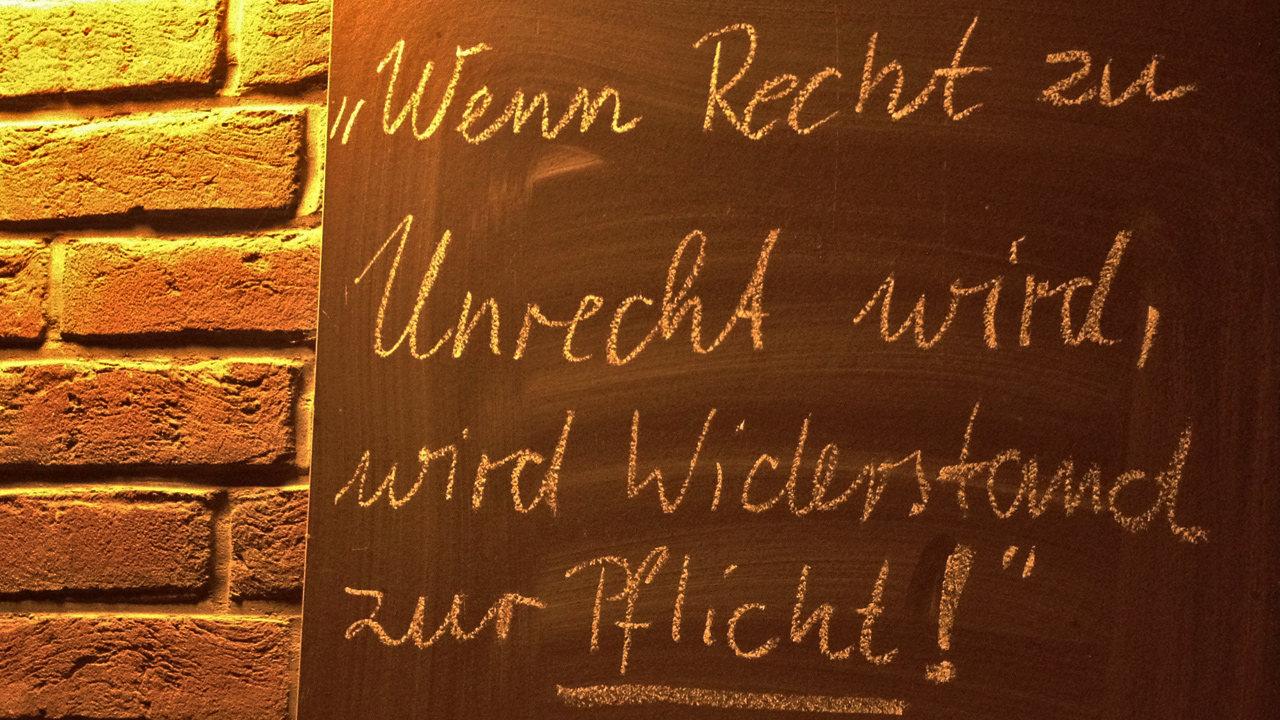 „Wenn Recht zu
Unrecht wird,
wird Widerstand
zur Pflicht!“